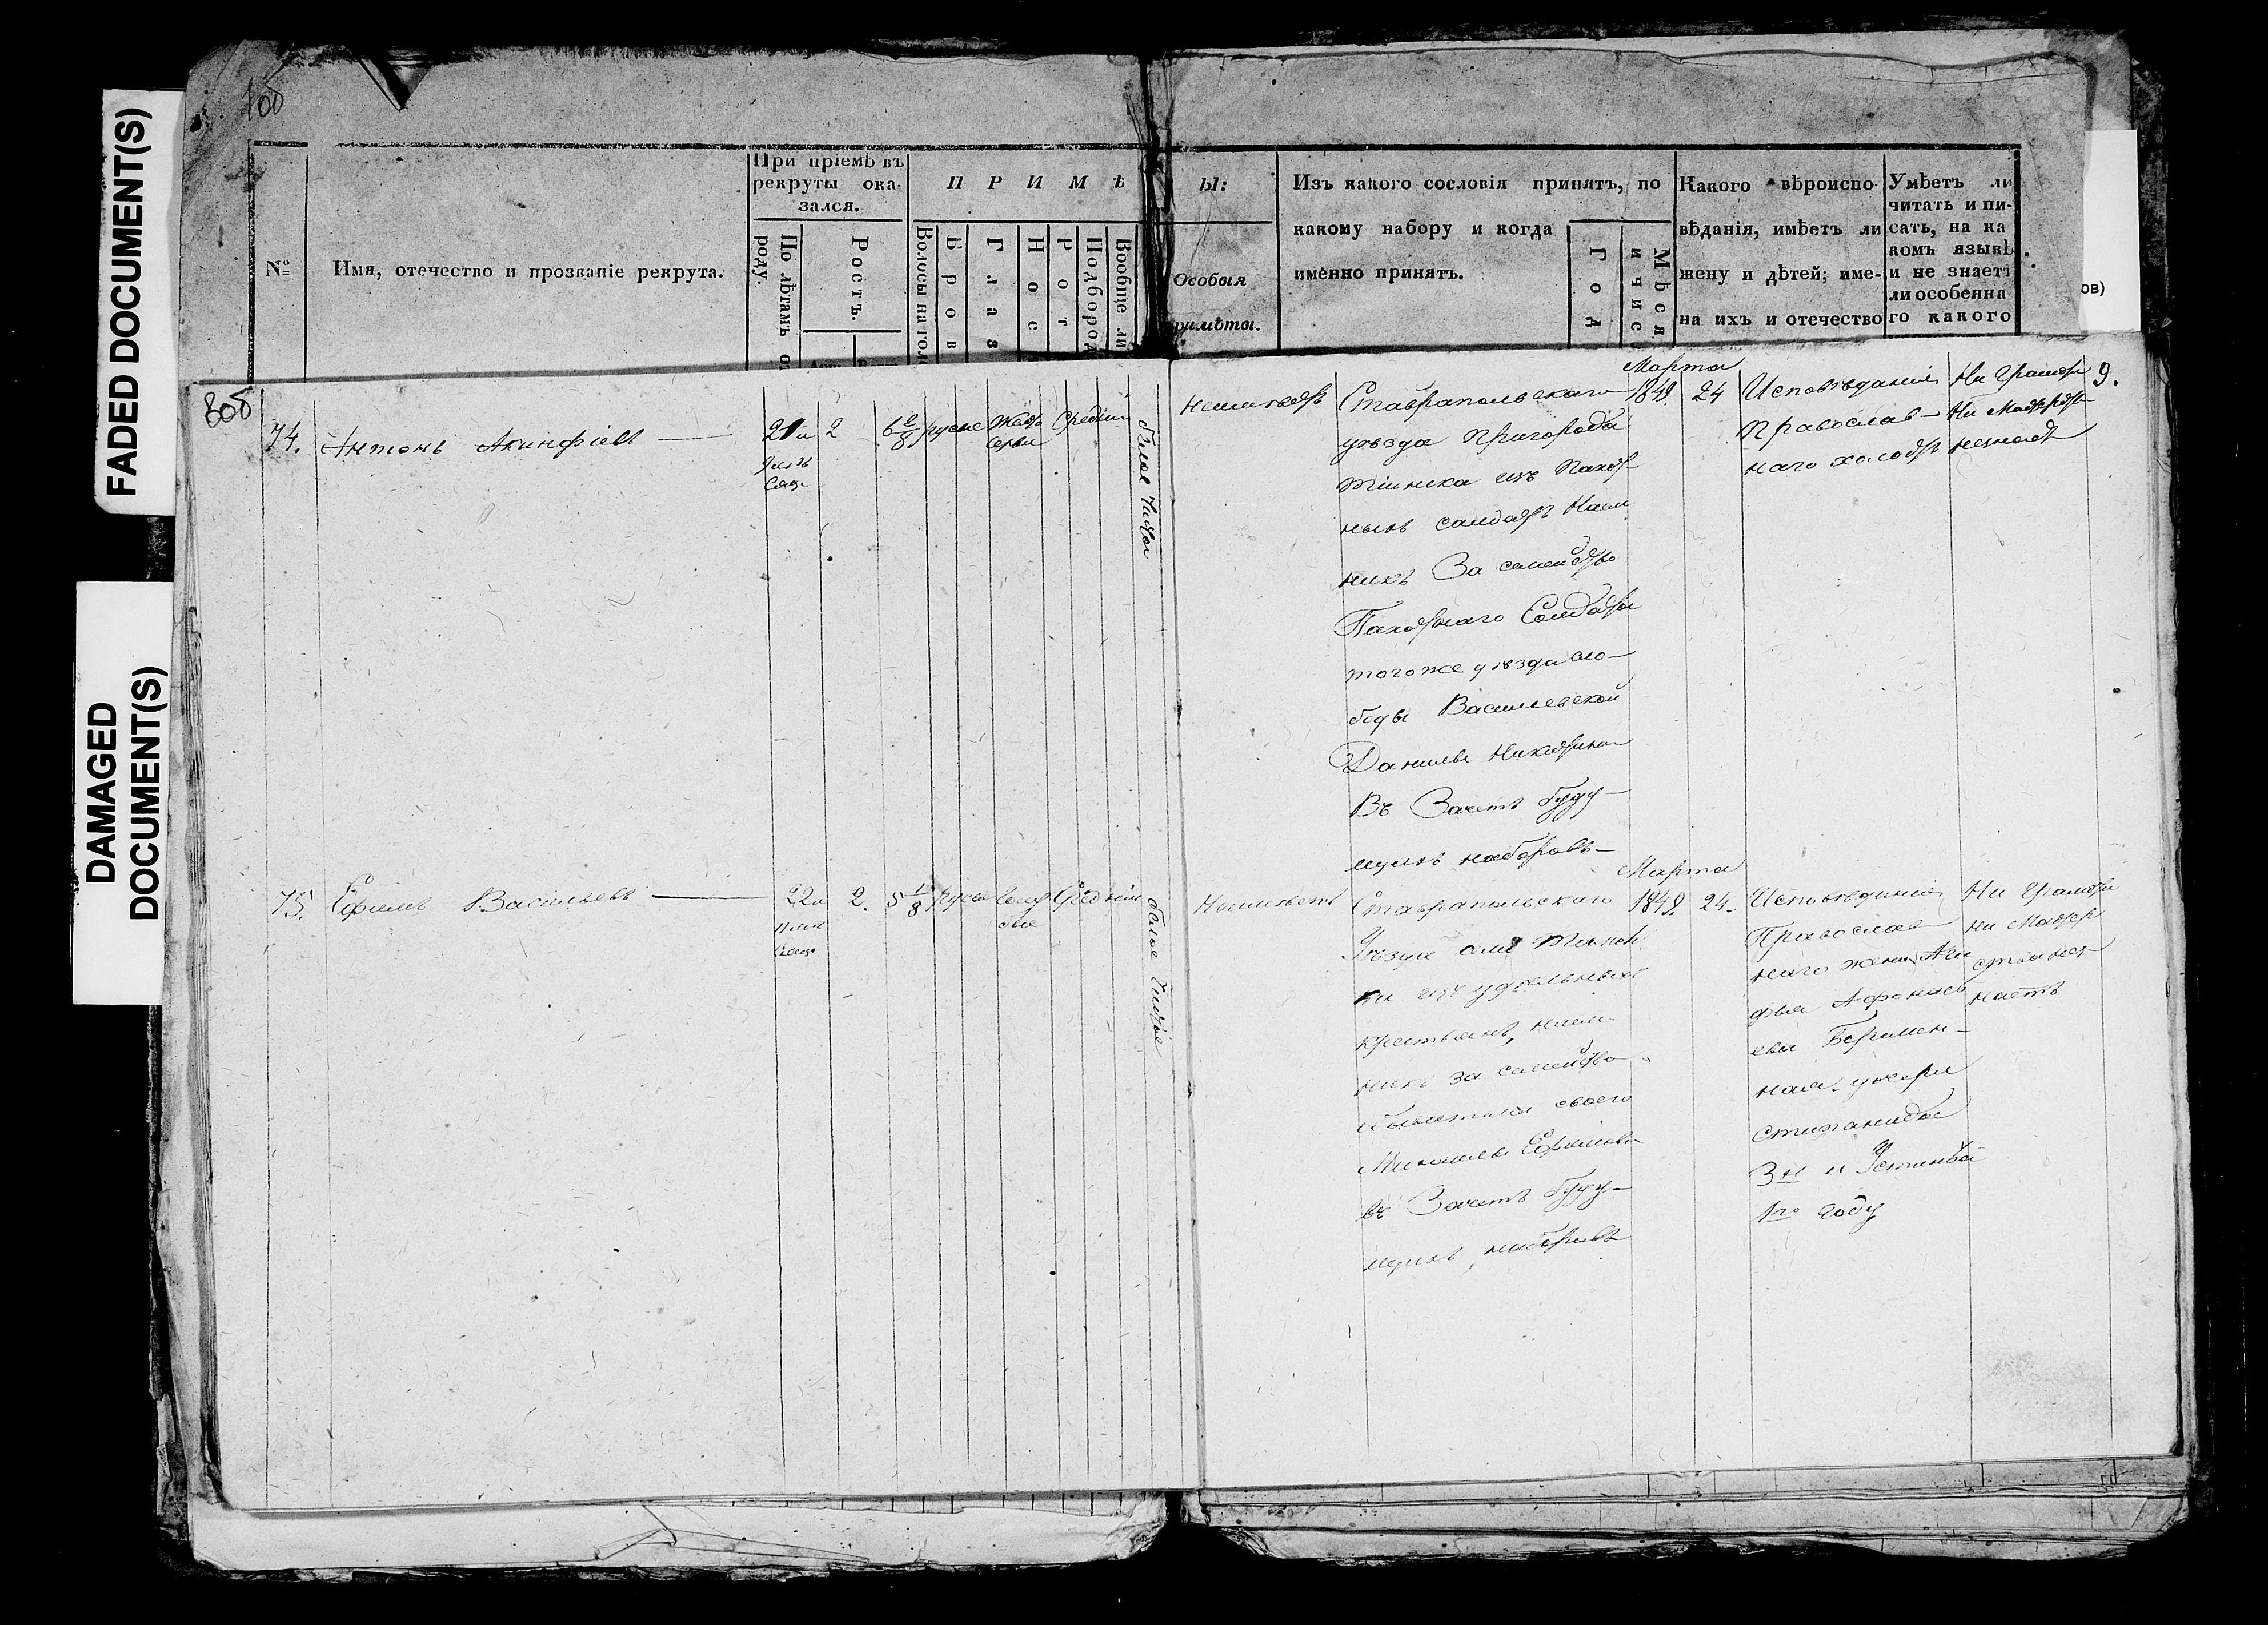 FADED DOCUMENT(S)
DAMAGED
DOCUMENT(S)
№
Имя, отечество и прозваніе рекрута.
При пріемѣ въ
рекруты ока-
зался.
По лѣтамъ о
роду.
Ростъ.
ПРИМѢ
Волосы на гол
Бров
Глаз
Нос
Рот
Подбород
Вообще ли
Ы:
Особыя
римѣты.
Изъ какого сословія принятъ, по
какому набору и когда
именно принятъ.
Год
Мѣся
и чис
Какого вѣроиспо-
вѣданія, имѣетъ ли
жену и дѣтей; име-
на ихъ и отечество
Умѣетъ ли
читать и пи-
сать, на ка
комъ языкѣ
и не знаетъ
ли особенна
го какого
ов)
74.
Антонъ Акинфіевъ
21 и
2
6 2/8
русые
средніи
белое чистое
Неимеетъ
Ставрапольскаго
уѣзда пригорода
тіинска изъ Пахот
ныхъ салдатъ Наем
никъ За семейство
Пахотнаго Солдата
тогоже уѣзда сло-
боды Васильевской
Данилы Никитина
Въ Зачетъ буду-
щихъ наборовъ-
Марта
1849.
24
Исповѣданія
Православ-
наго холостъ
Ни Грамоты
Ни Мастерст-
незнаетъ
9.
75.
Ефимъ Васильевъ
22 и
2.
5 1/8
русые
Средніи
белое чистое
Неимѣетъ
Ставрапольскаго
Уѣзда
ки изъ удельныхъ
крестьянъ, наем-
никъ за семейство
обывателя своего
Михаилы Ефимова
въ Зачетъ буду-
щихъ наборовъ
Марта
1849.
24.
Исповѣданія
Православ
наго жена Ага
фья Афонась
ева Беремен-
ная, дочери
степанида
3х и Устинья
1го году
Ни Грамоты
ни Мастер
ства нез-
наетъ